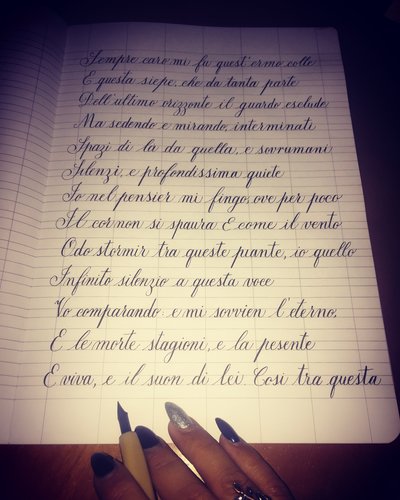 Sempre caro mi fu quest'ermo colle
E questa siepe, che da tanta parte
Dell'ultimo orizzonte il guardo esclude
Ma sedendo e mirando, interminati
Spazi di là da quella, e sovrumani
Silenzi, e profondissima quiete
Io nel pensier mi fingo, ove per poco
Il cor non si spaura E come il vento
Odo stormir tra queste piante, io quello
Infinito silenzio a questa voce
Vo comparando: e mi sovvien l'eterno,
E le morte stagioni, e la pesente
E viva, e il suon di lei. Così tra questa